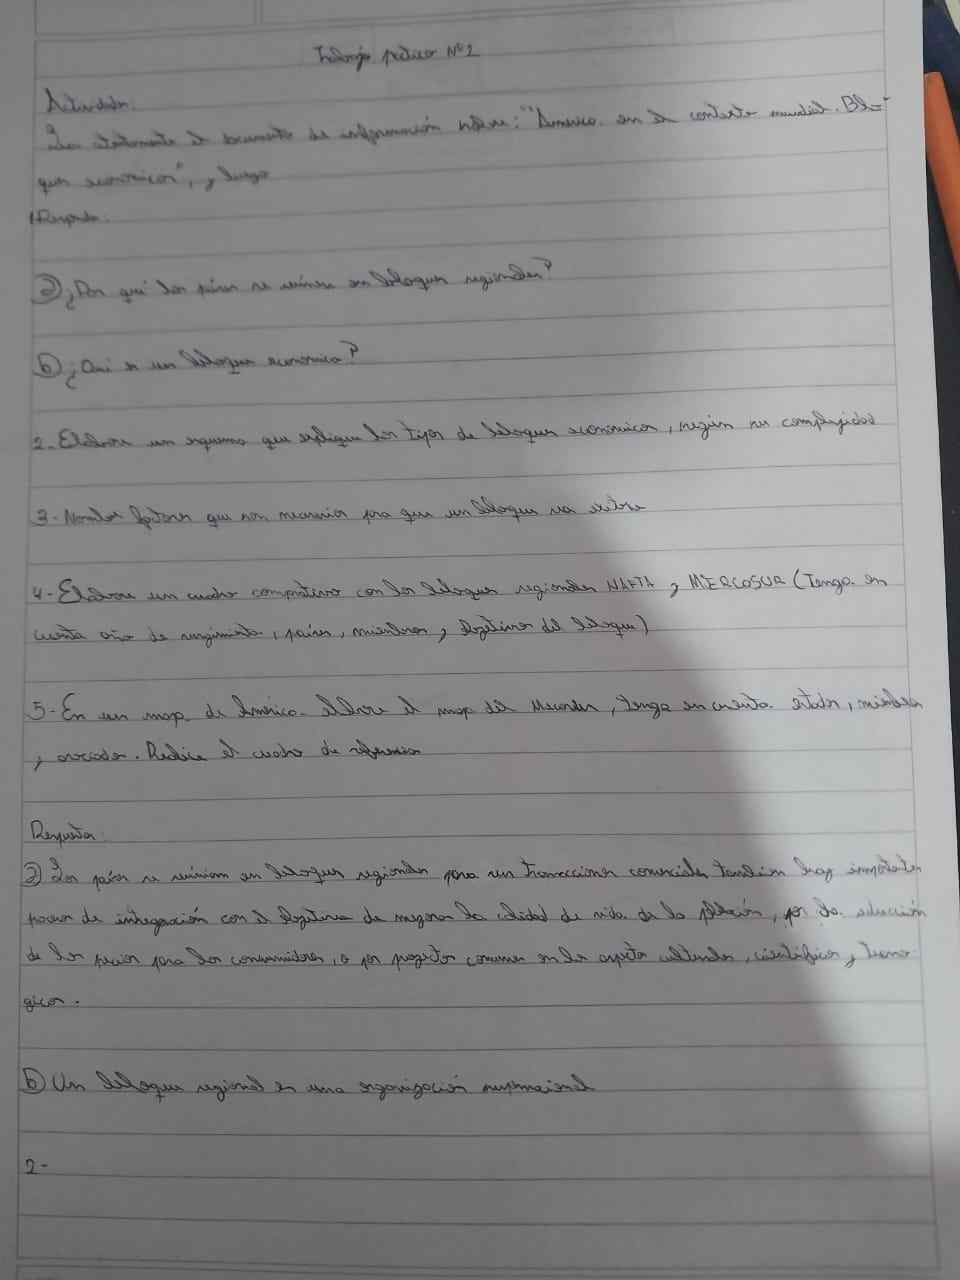 Trabajo práctico N°2
Actividades:
Lea atentamente el documento de información sobre: "América en el contexto mundial. Blo=
ques económicos", y luego
1 Responda:
a) ¿Por qué los países se reúnen en bloques regionales?
b) ¿Qué es un bloque económico?
2- Elabore un esquema que explique los tipos de bloques económicos, según su complejidad
3- Nombre factores que son necesarios para que un bloque sea exitoso
4- Elabore un cuadro comparativo con los bloques regionales NAFTA y MERCOSUR (Tenga en
cuenta año de surgimiento, países, miembros y objetivos del bloque)
5- En un mapa de América elabore el mapa del Mercosur, tenga en cuenta estados, miembros
y asociados. Realice el cuadro de referencias
Respuestas:
a) Los países se reúnen en bloques regionales para sus transacciones comerciales también hay importantes
procesos de integración con el objetivo de mejorar la calidad de vida de la población, por la reducción
de los precios para los consumidores, o por proyectos comunes en los aspectos culturales, científicos y tecnoló
gicos.
b) Un bloque regional es una organización supranacional
2-